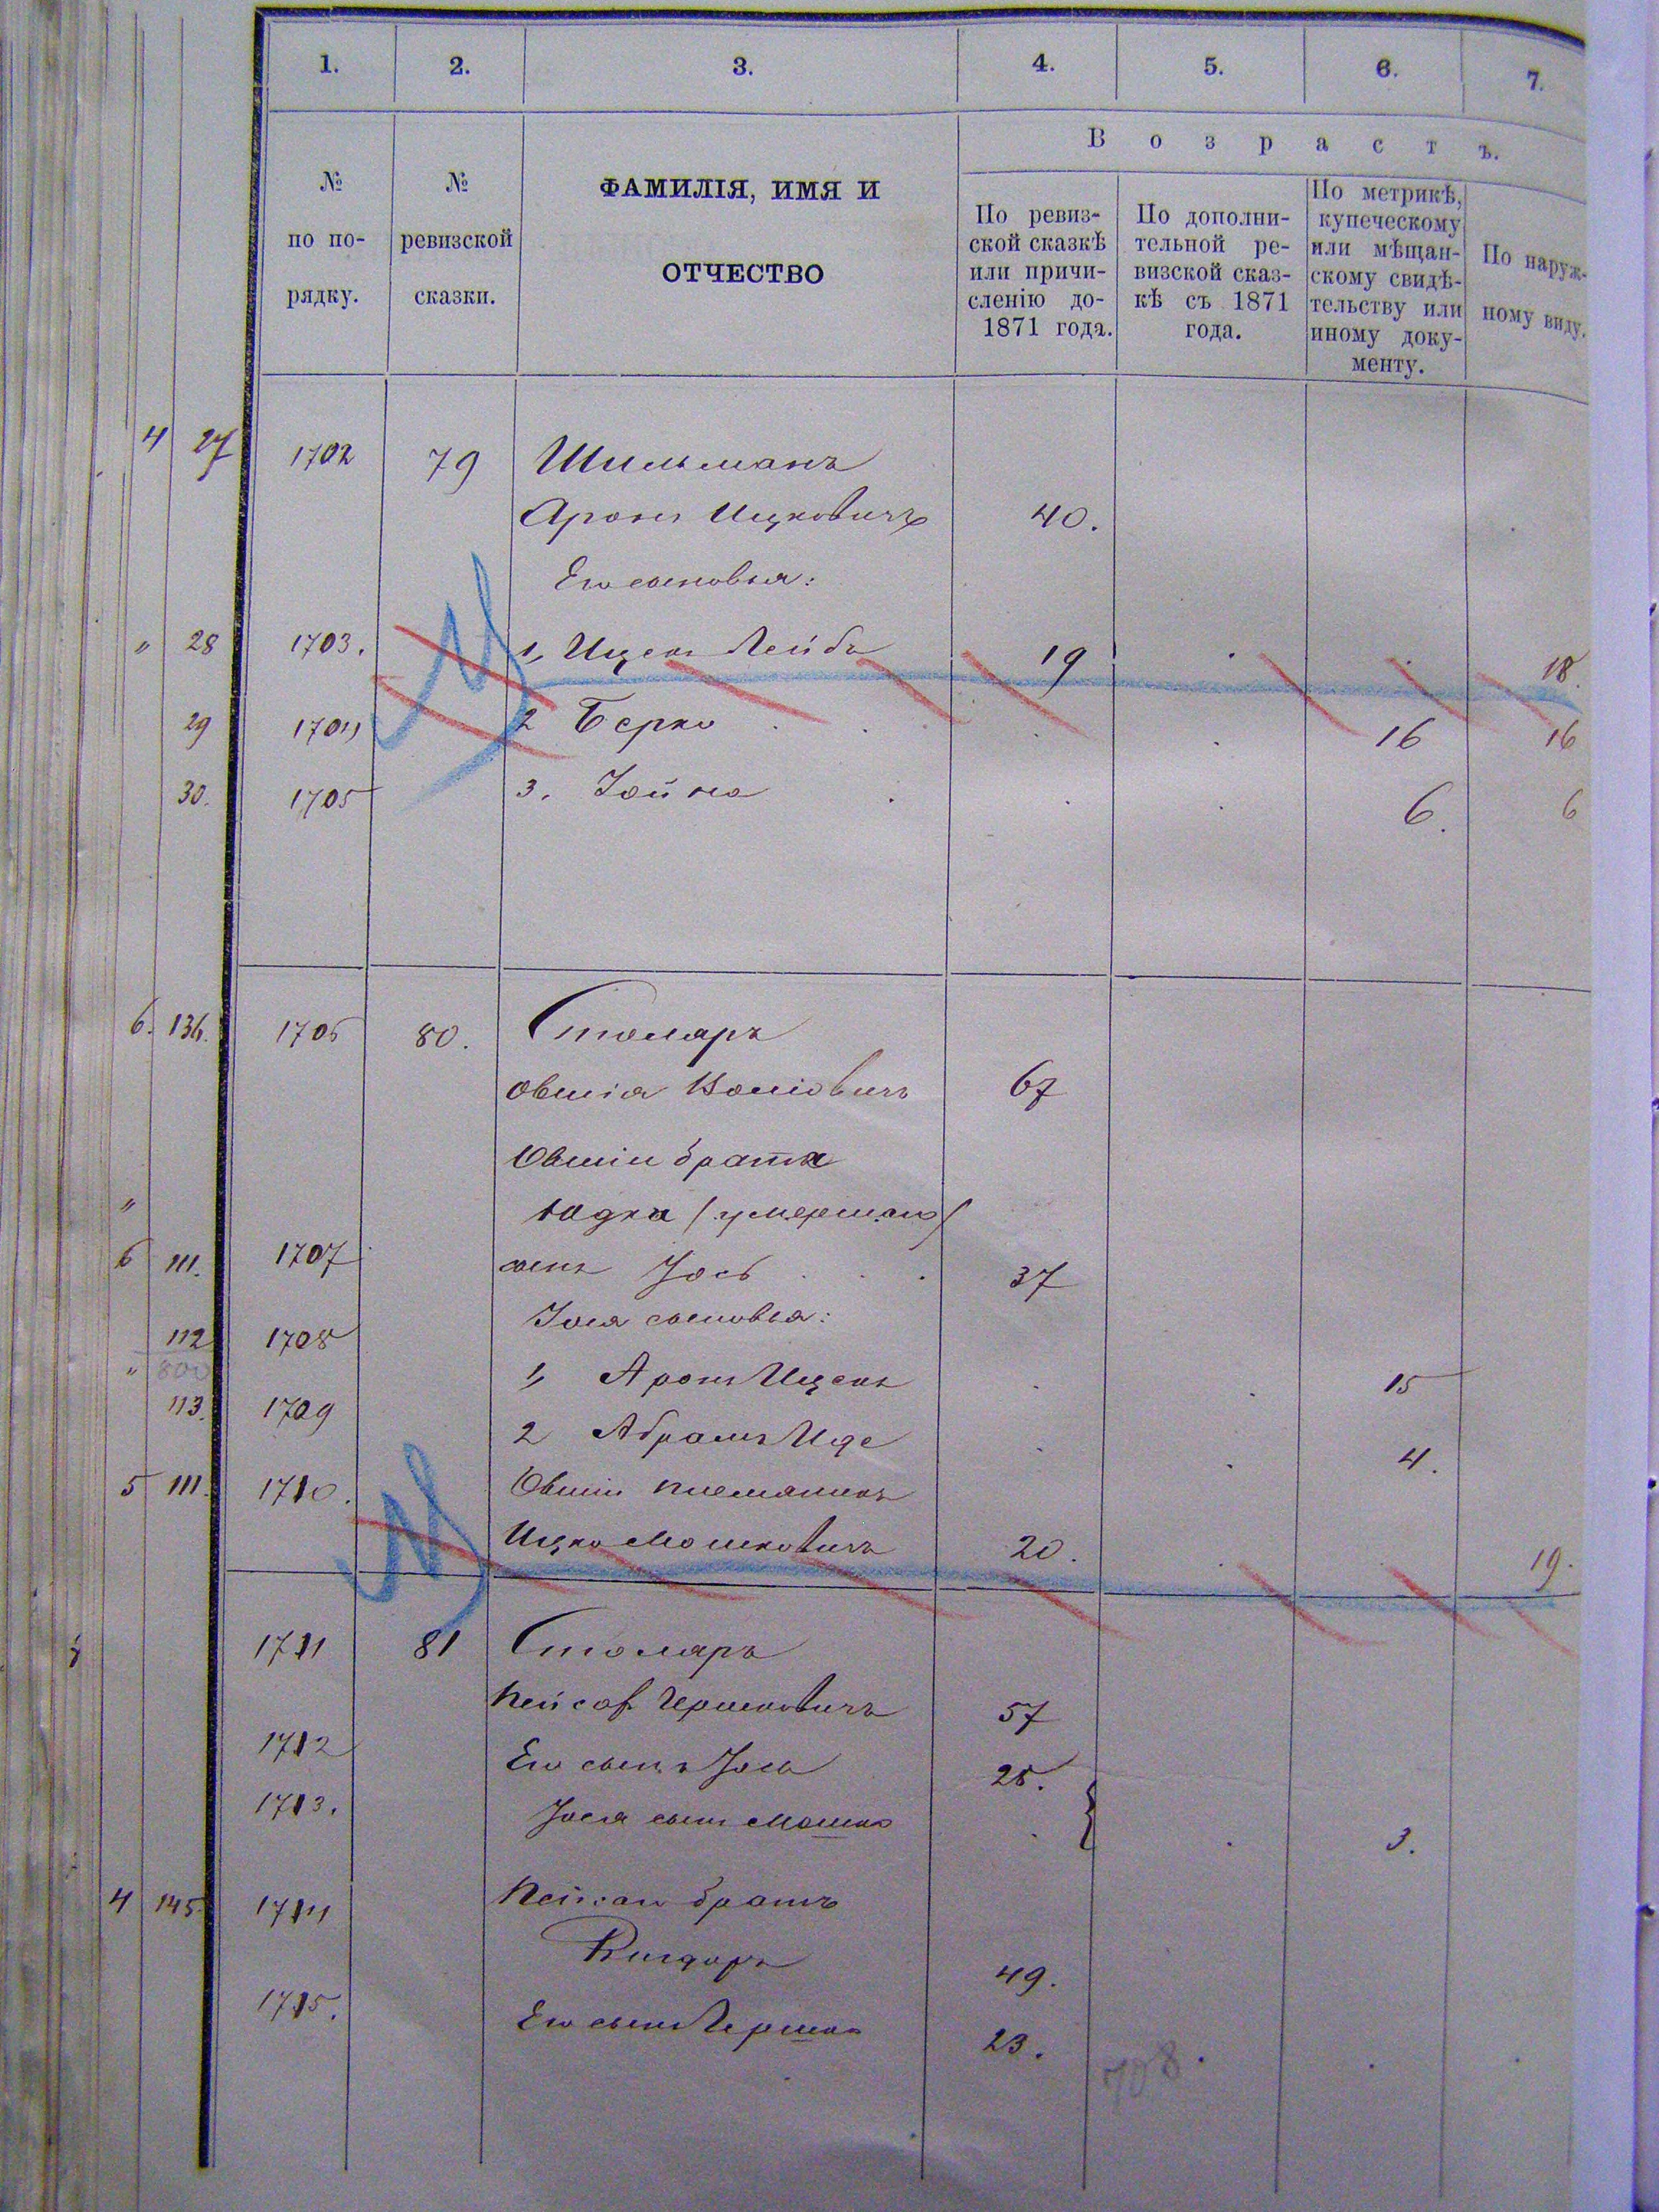 1. 2. 3. 4. 5. 6. 7.
№ по по-рядку.
№ ревизской сказки.
ФАМИЛІЯ, ИМЯ И
ОТЧЕСТВО
Возрастъ.
По ревиз-
ской сказкѣ
или причи-
сленію до
1871 года.
По дополни-
тельной ре-
визской сказ-
кѣ съ 1871
года.
По метрикѣ,
купеческому
или мѣщан-
скому свидѣ-
тельству или
иному доку-
менту.
По наруж-
ному виду.
4 27 1702 79 Шильманъ
Аронъ Ицковичъ 40.
Его сыновья:
" 28 1703. 1, Ицекъ Лейба 19 18.
29 1704 2 Берко 16 16
30. 1705 3. Іойна 6. 6
6. 136. 1706 80. Столяръ
Овшія 67
Овшіи брата
Юдка (умершаго)
"
6 111. 1707 сынъ Іось 37
Іося сыновья:
112 1708
" 800 1, Аронъ Ицекъ 15
113. 1709
2 Абрамъ Иде 4.
5 111. 1710. Овшіи племянникъ
Ицко Мошковичъ 20. 19.
1711 81 Столяръ
Пейсах Гершковичъ 57
1712 Его сынъ Іось 25.
1713. Іося сынъ Мошко 3.
4 145. 1714 Пейсаха братъ
49.
1715. Его сынъ Гершко 23.
708.